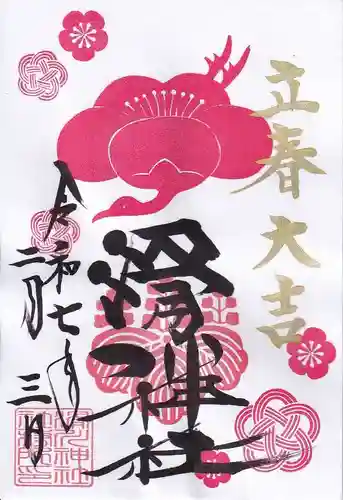 立春大吉
神社
令和七年
二月三日